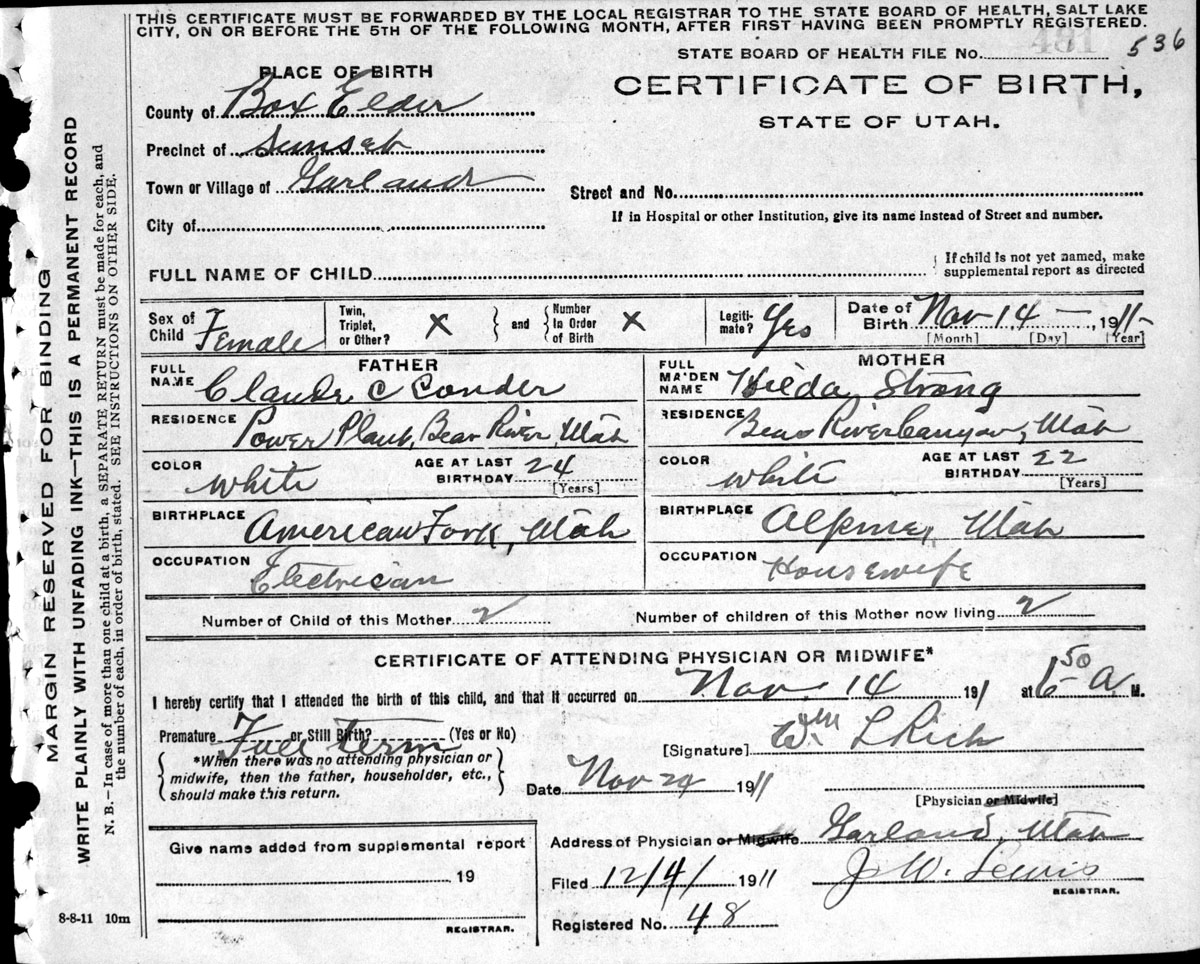 THIS CERTIFICATE MUST BE FORWARDED BY THE LOCAL REGISTRAR TO THE STATE BOARD OF HEALTH, SALT LAKE
CITY, ON OR BEFORE THE 5TH OF THE FOLLOWING MONTH, AFTER FIRST HAVING BEEN PROMPTLY REGISTERED.
STATE BOARD OF HEALTH FILE No. 481 536
PLACE OF BIRTH
CERTIFICATE OF BIRTH,
STATE OF UTAH.
County of Box Elder
Precinct of Sunset
Town or Village of Garland
Street and No.
If in Hospital or other Institution, give its name instead of Street and number.
City of
FULL NAME OF CHILD
If child is not yet named, make
supplemental report as directed
Sex of Child Female
Twin, Triplet, or Other? X
and
Number In Order of Birth X
Legiti-mate? Yes
Date of Birth Nov 14 - , 1911-
[Month] [Day] [Year]
FATHER
FULL NAME Claude C Conder
RESIDENCE Power Plant, Bear River, Utah
COLOR White
AGE AT LAST BIRTHDAY 24
[Years]
BIRTHPLACE American Fork, Utah
OCCUPATION Electrician
MOTHER
FULL MAIDEN NAME Hilda Strong
RESIDENCE Bear River Canyon, Utah
COLOR White
AGE AT LAST BIRTHDAY 22
[Years]
BIRTHPLACE Alpine, Utah
OCCUPATION Housewife
Number of Child of this Mother 2
Number of children of this Mother now living 2
CERTIFICATE OF ATTENDING PHYSICIAN OR MIDWIFE*
I hereby certify that I attended the birth of this child, and that it occurred on Nov. 14 191 at 6 50 A. M.
Premature or Still Birth? (Yes or No)
Full term
*When there was no attending physician or
midwife, then the father, householder, etc.,
should make this return.
[Signature] Wm L Rich
Date Nov 29 1911
[Physician or Midwife]
Address of Physician or Midwife Garland, Utah
Filed 12/4/ 1911
J W. Lewis
REGISTRAR.
Registered No. 48
Give name added from supplemental report
19
REGISTRAR.
8-8-11 10m
MARGIN RESERVED FOR BINDING
WRITE PLAINLY WITH UNFADING INK—THIS IS A PERMANENT RECORD
N. B.—In case of more than one child at a birth, a SEPARATE RETURN must be made for each, and
the number of each, in order of birth, stated. SEE INSTRUCTIONS ON OTHER SIDE.